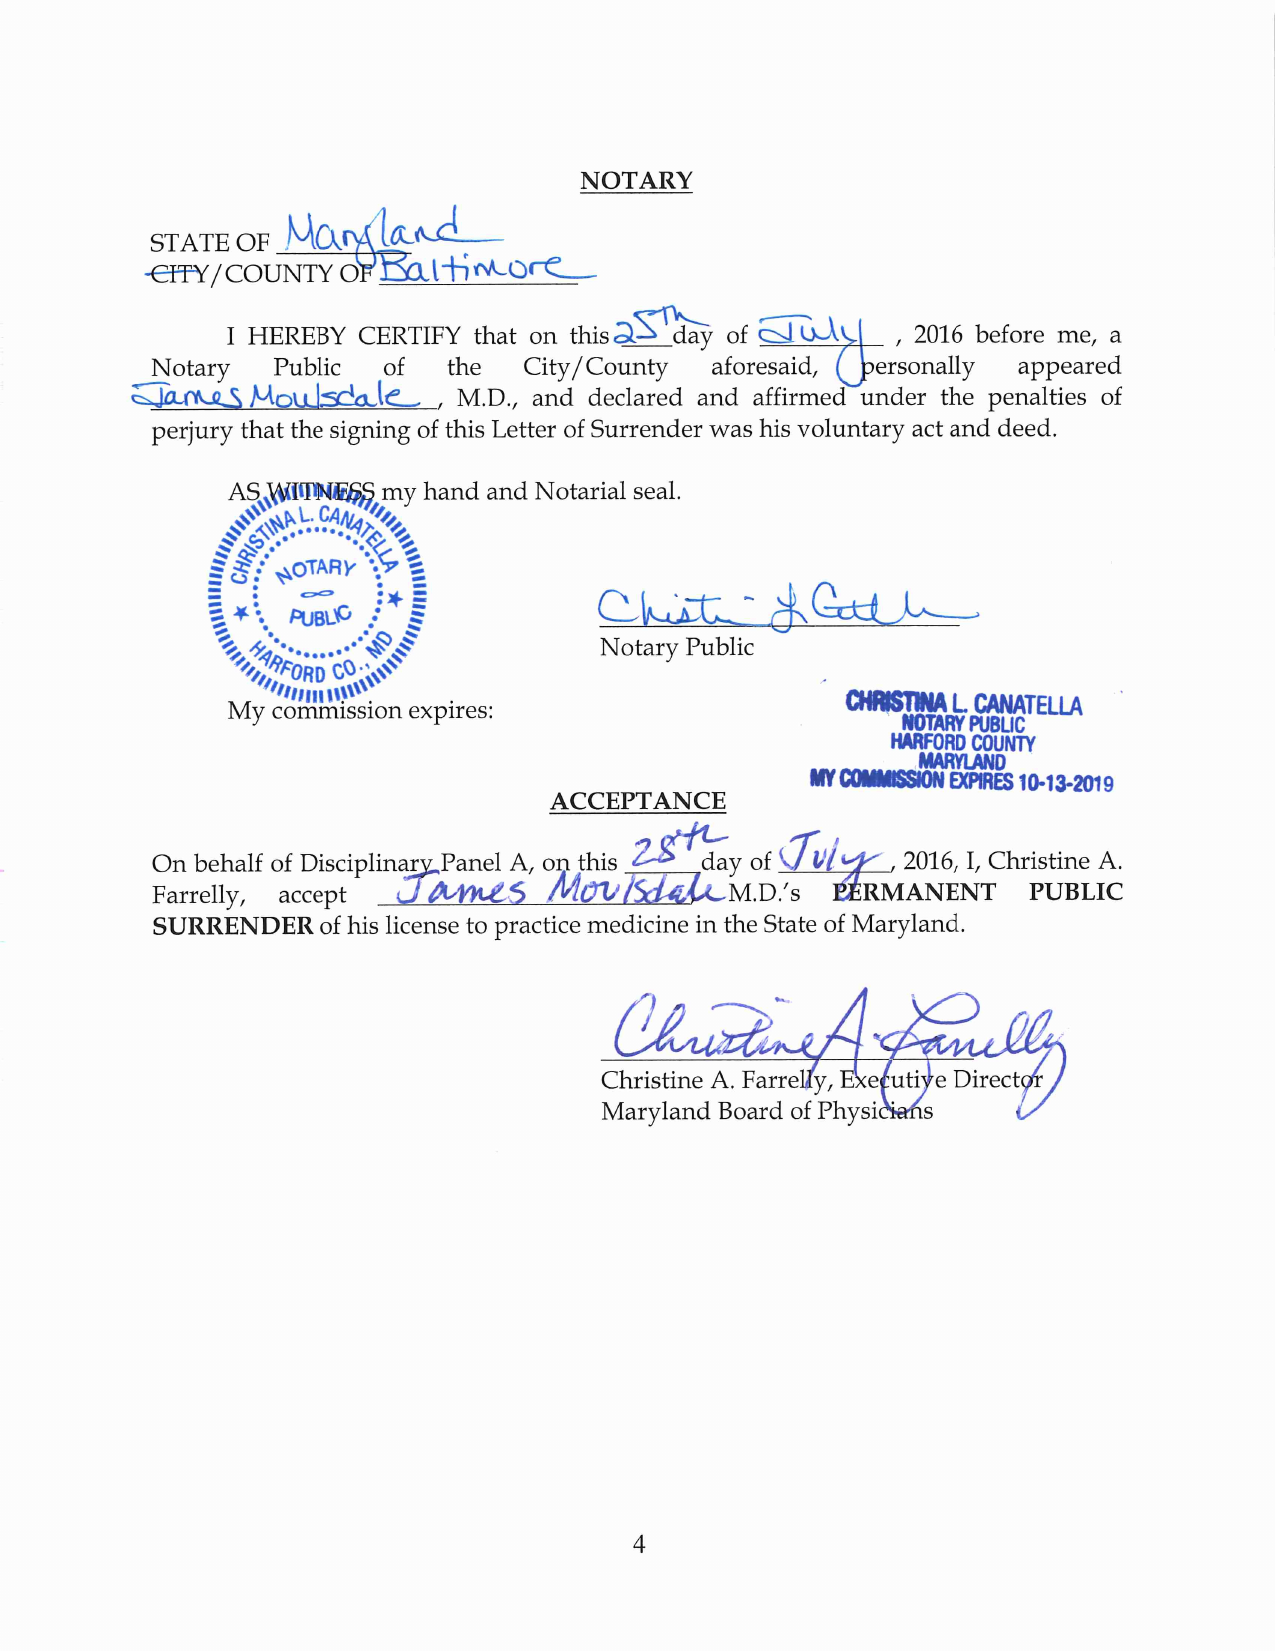 NOTARY
STATE OF Maryland
CITY/COUNTY OF Baltimore
I HEREBY CERTIFY that on this 25th day of July, 2016 before me, a
Notary Public of the City/County aforesaid, personally appeared
James Moulsdale, M.D., and declared and affirmed under the penalties of
perjury that the signing of this Letter of Surrender was his voluntary act and deed.
AS WITNESS my hand and Notarial seal.
CHRISTINA L. CANATELLA
NOTARY
PUBLIC
HARFORD CO., MD
Notary Public
My commission expires:
CHRISTINA L. CANATELLA
NOTARY PUBLIC
HARFORD COUNTY
MARYLAND
MY COMMISSION EXPIRES 10-13-2019
ACCEPTANCE
On behalf of Disciplinary Panel A, on this 28th day of July, 2016, I, Christine A.
Farrelly, accept James Moulsdale, M.D.'s PERMANENT PUBLIC
SURRENDER of his license to practice medicine in the State of Maryland.
Christine A. Farrelly
Christine A. Farrelly, Executive Director
Maryland Board of Physicians
4